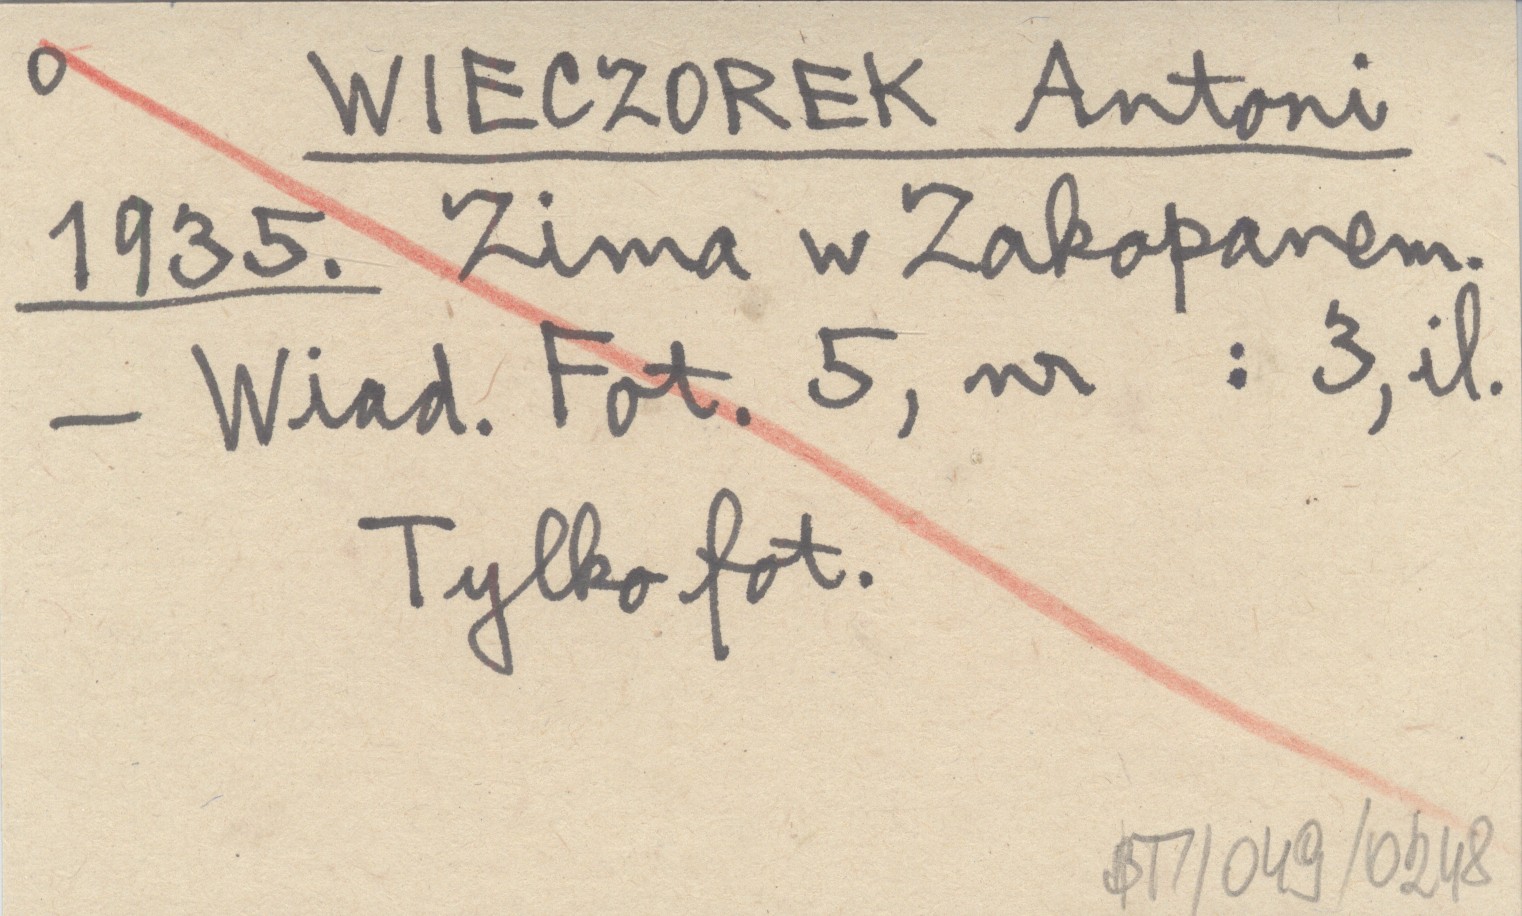 o WIECZOREK Antoni
1935. Zima w Zakopanem.
— Wiad. Fot. 5, nr : 3, il.
Tylko fot.
BT/049/0248